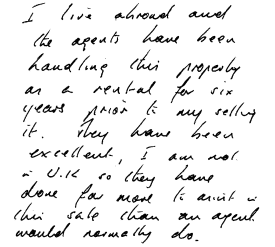 I live abroad and
the agents have been
handling this property
as a rental for six
years prior to my selling
it. They have been
excellent, I am not
in U.K so they have
done far more to assist in
this sale than an agent
would normally do.